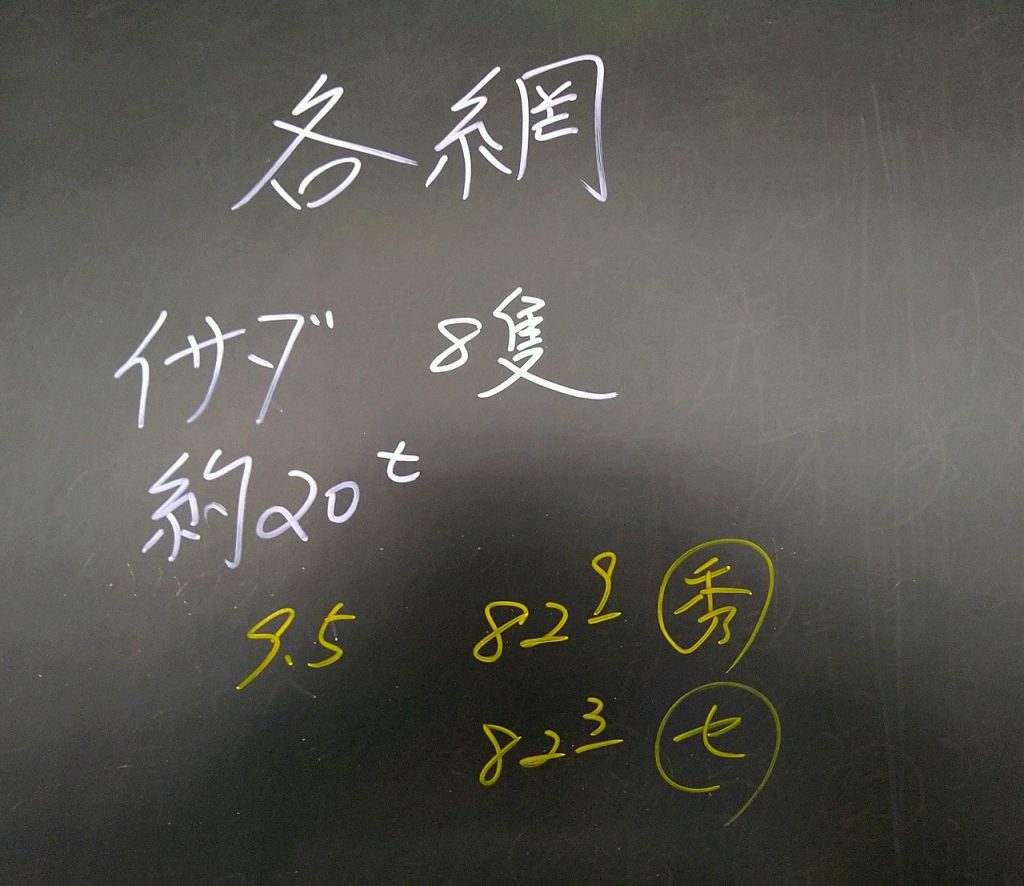 各網
イサダ 8隻
約20t
9.5 829 秀
823 七